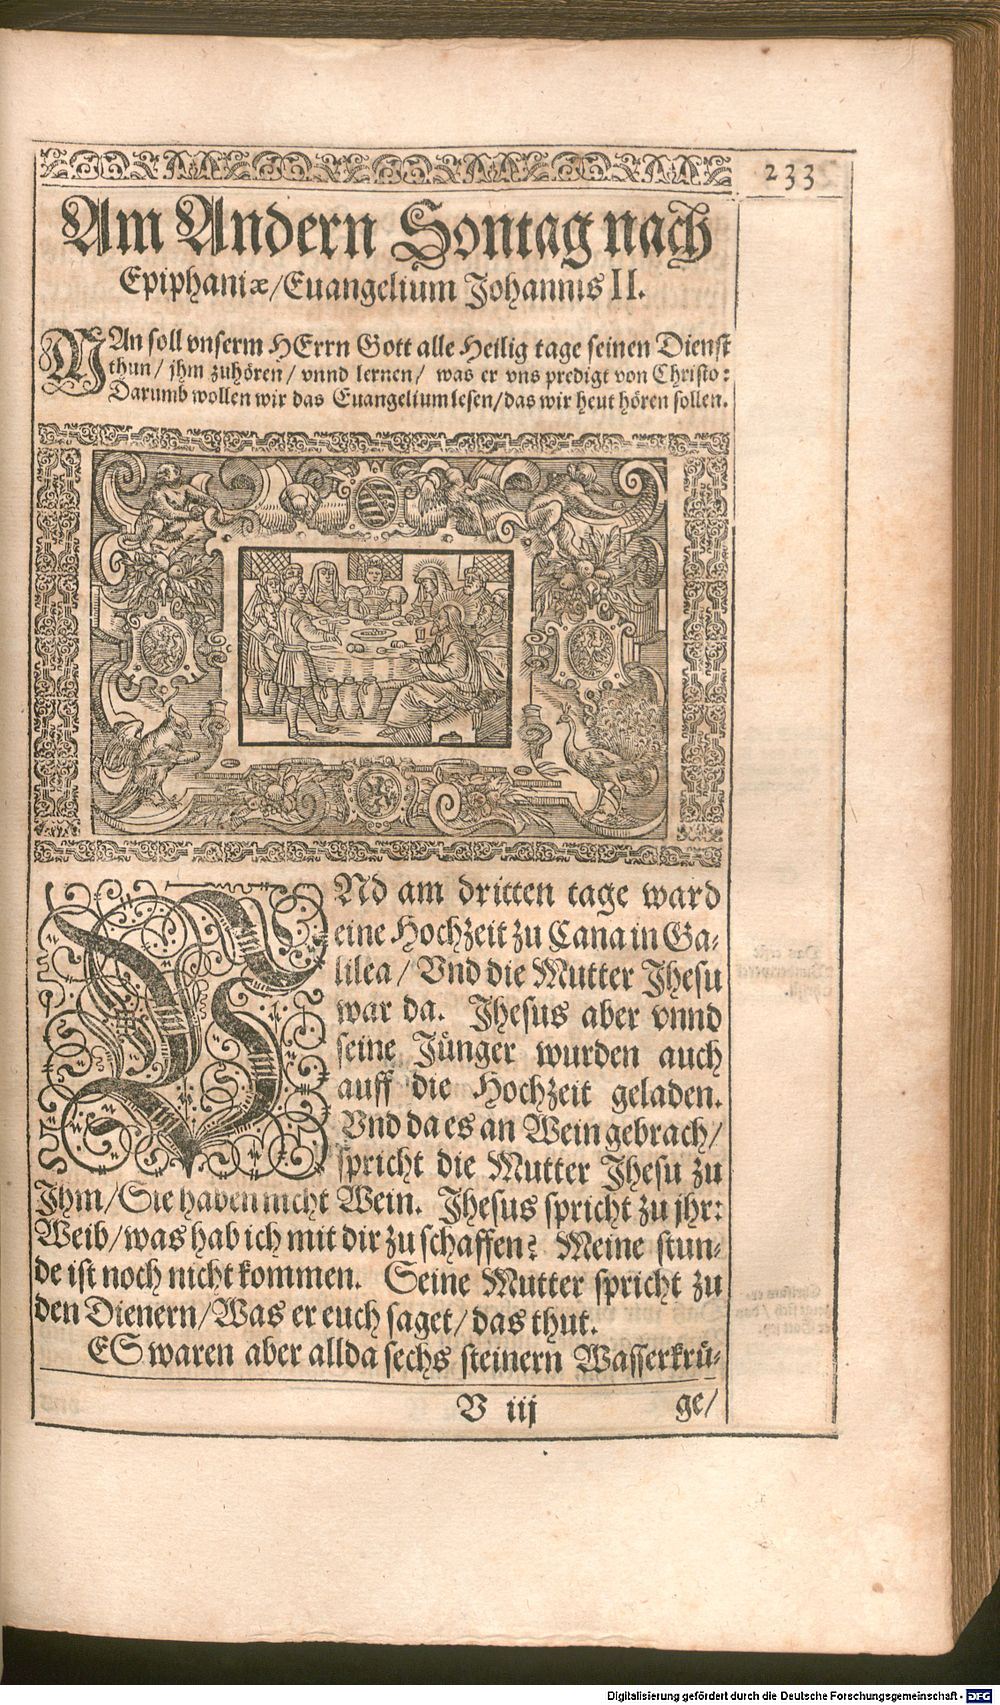 233
Am Andern Sontag nach
Epiphaniæ/Euangelium Johannis II.
MAn soll vnserm HErrn Gott alle Heilig tage seinen Dienst
thun/ jhm zuhören/ vnnd lernen/ was er vns predigt von Christo:
Darumb wollen wir das Euangelium lesen/das wir heut hören sollen.
VNd am dritten tage ward
eine Hochzeit zu Cana in Ga-
lilea/ Vnd die Mutter Jhesu
war da. Jhesus aber vnnd
seine Jünger wurden auch
auff die Hochzeit geladen.
Vnd da es an Wein gebrach/
spricht die Mutter Jhesu zu
Jhm/Sie haben nicht Wein. Jhesus spricht zu jhr:
Weib/was hab ich mit dir zu schaffen? Meine stun-
de ist noch nicht kommen. Seine Mutter spricht zu
den Dienern/Was er euch saget/das thut.
ES waren aber allda sechs steinern Wasserkrü-
V iij ge/
Digitalisierung gefördert durch die Deutsche Forschungsgemeinschaft - DFG